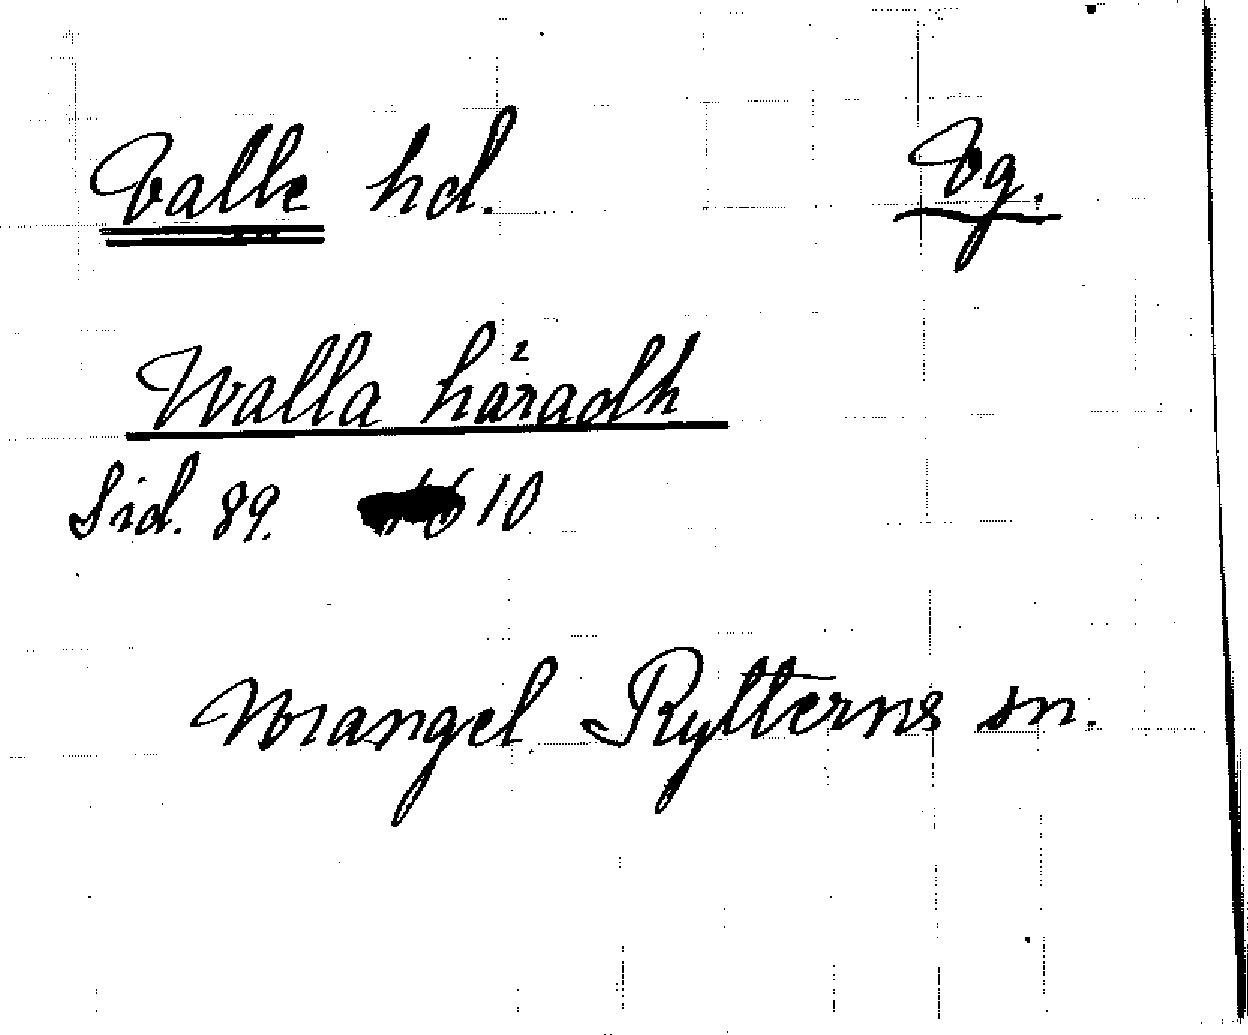 Valle hd. Vg.
Walla häradh
Sid. 89. 1610
Wrangel Rytterns sn.